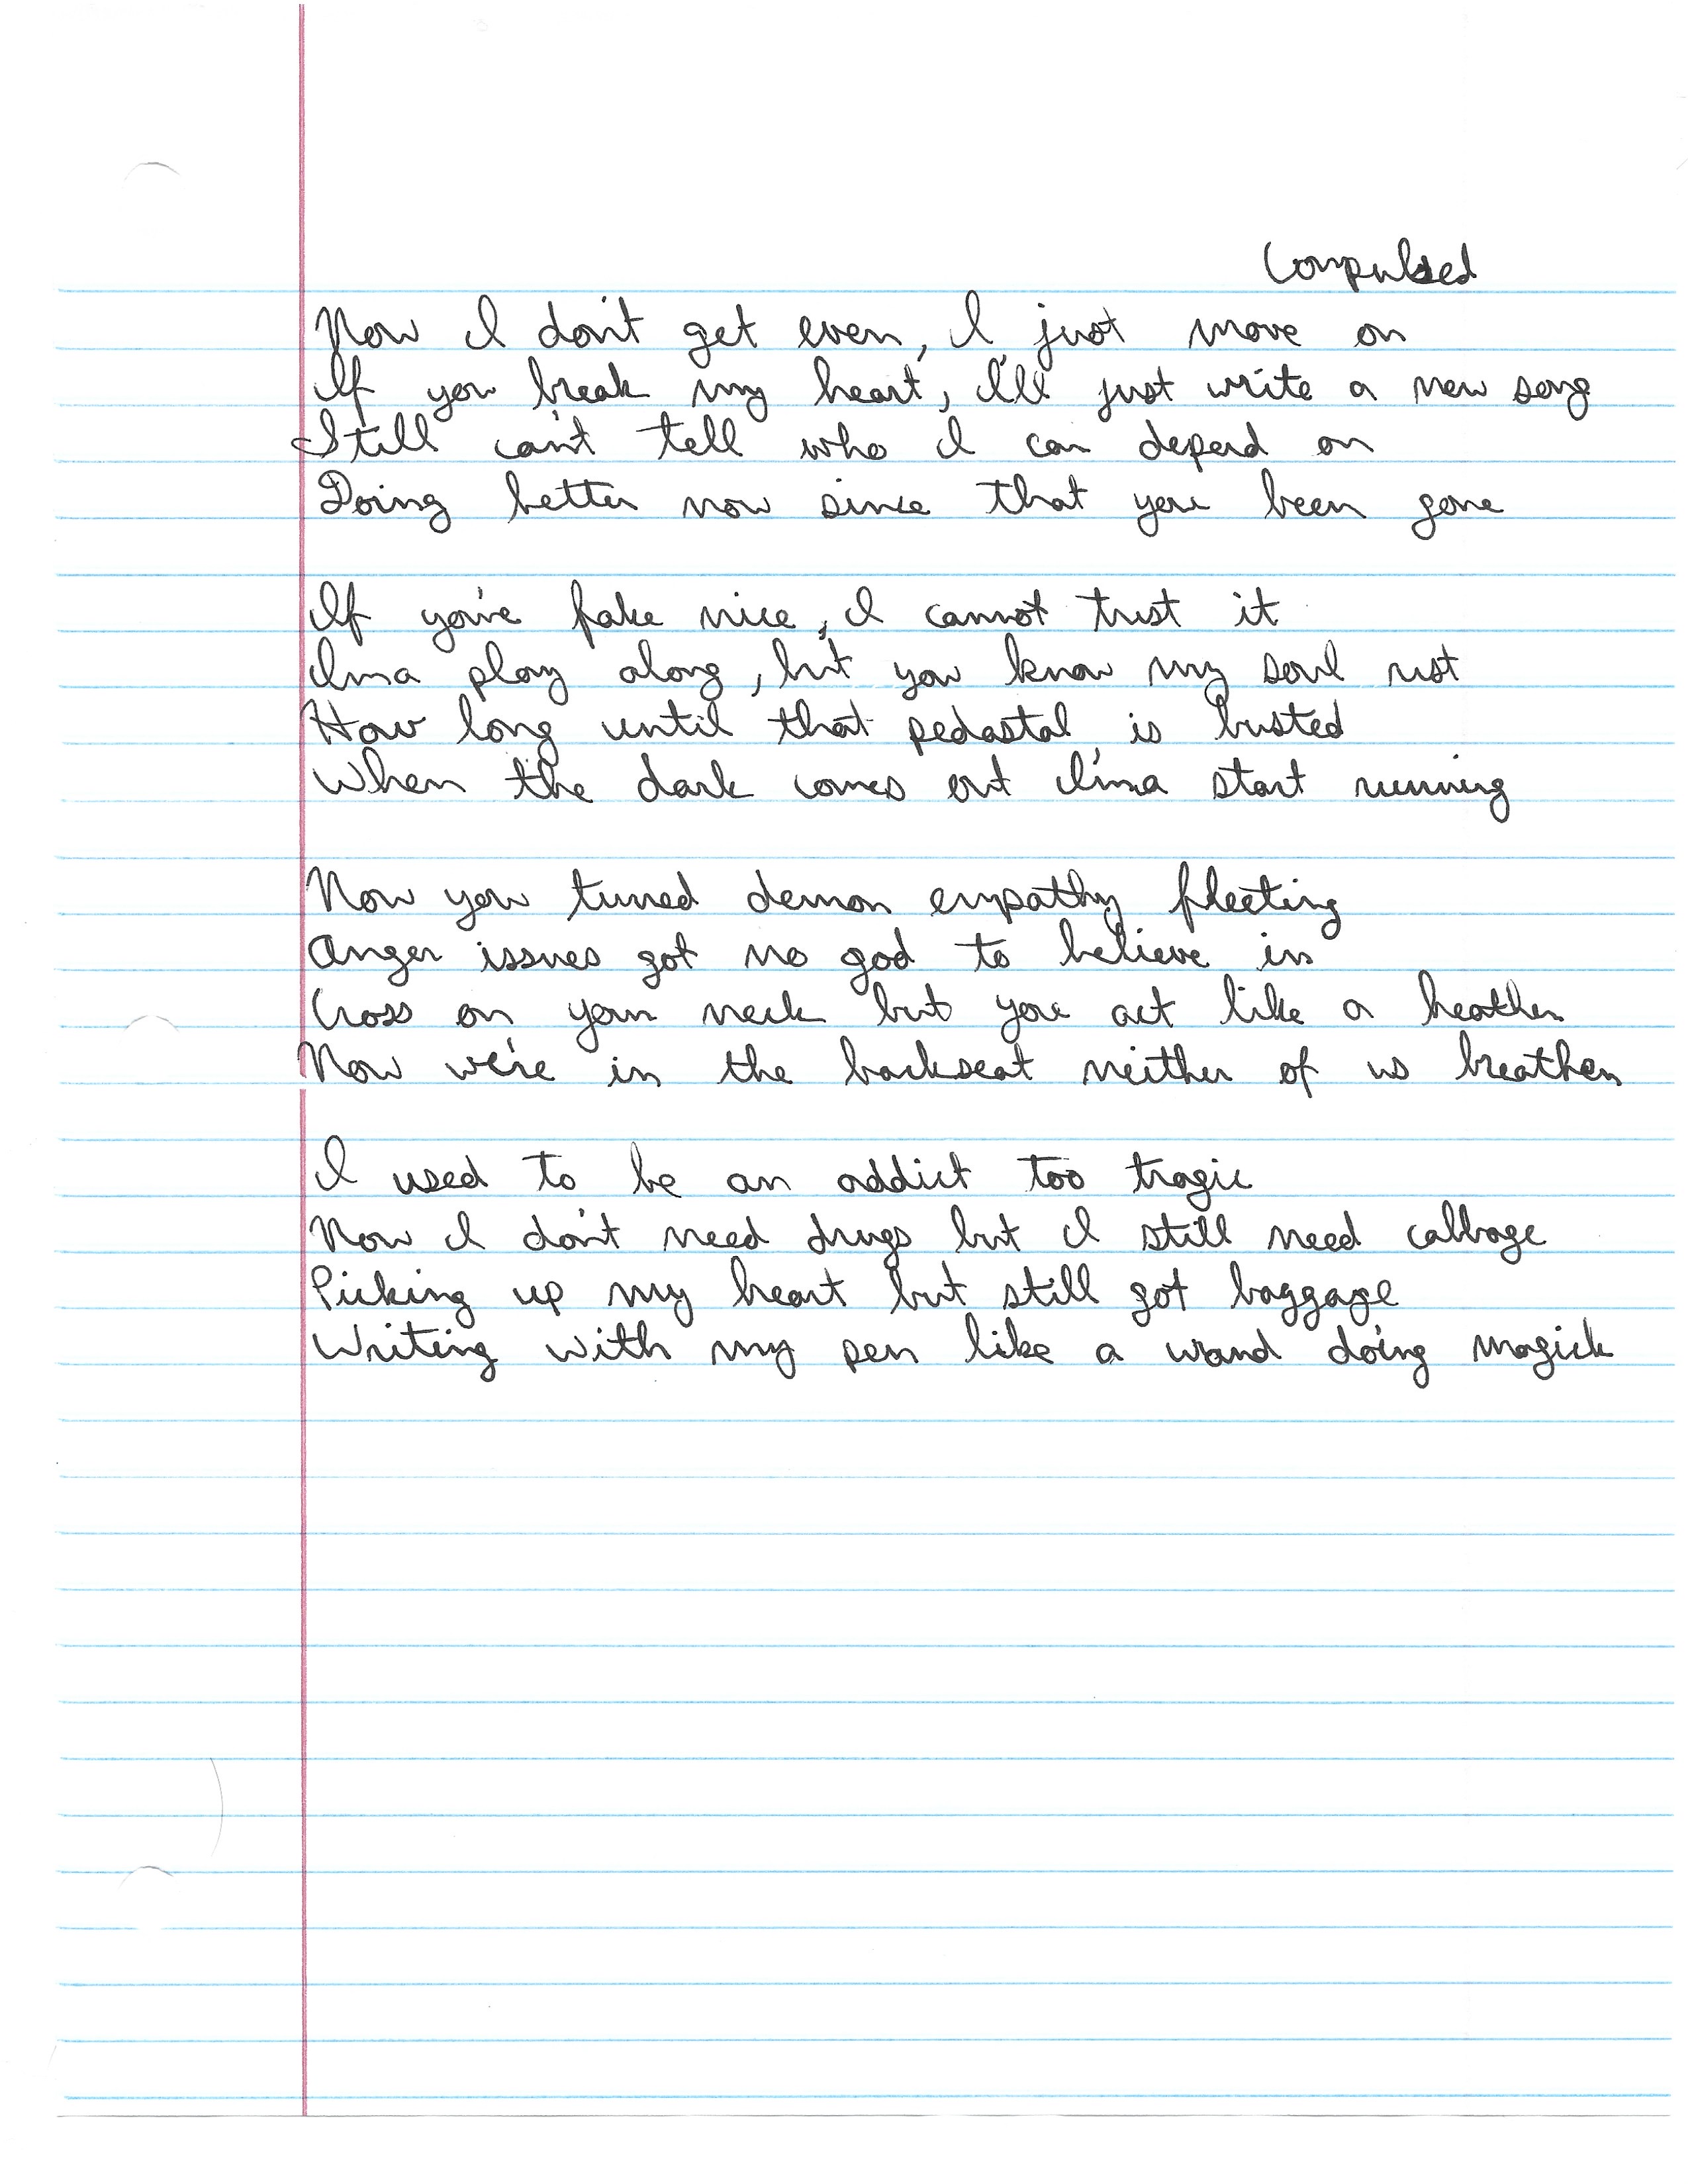 Compulsed
Now I don't get even, I just move on
If you break my heart, I'll just write a new song
Still can't tell who I can depend on
Doing better now since that you been gone
If you're fake nice, I cannot trust it
Ima play along, but you know my soul rust
How long until that pedastal is busted
When the dark comes out I'ma start running
Now you turned demon empathy fleeting
Anger issues got no god to believe in
Cross on your neck but you act like a heathen
Now we're in the backseat neither of us breathen
I used to be an addict too tragic
Now I don't need drugs but I still need cabbage
Picking up my heart but still got baggage
Writing with my pen like a wand doing magick